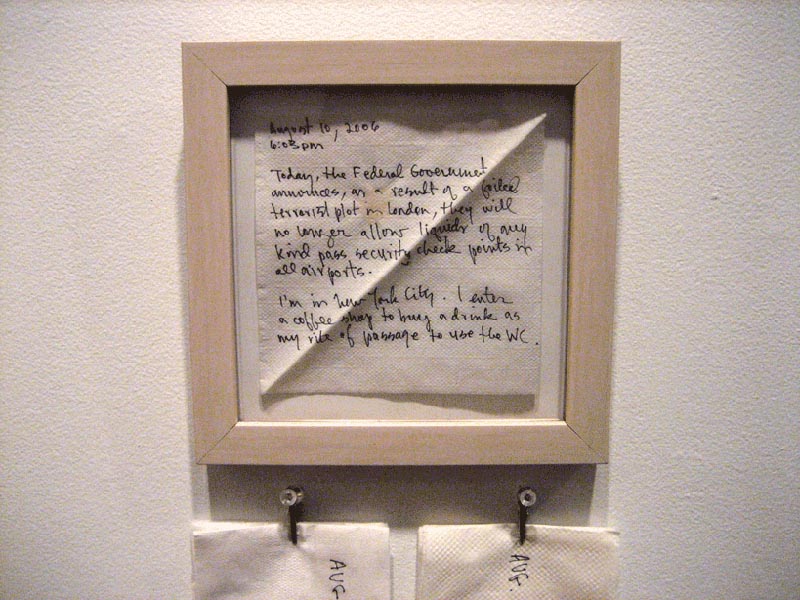 August 10, 2006
6:03pm
Today, the Federal Government
announces, as a result of a foiled
terrorist plot in London, they will
no longer allow liquids of any
kind pass security check points in
all airports.
I'm in New York City. I enter
a coffee shop to buy a drink as
my rite of passage to use the WC.
AUG.
AUG.